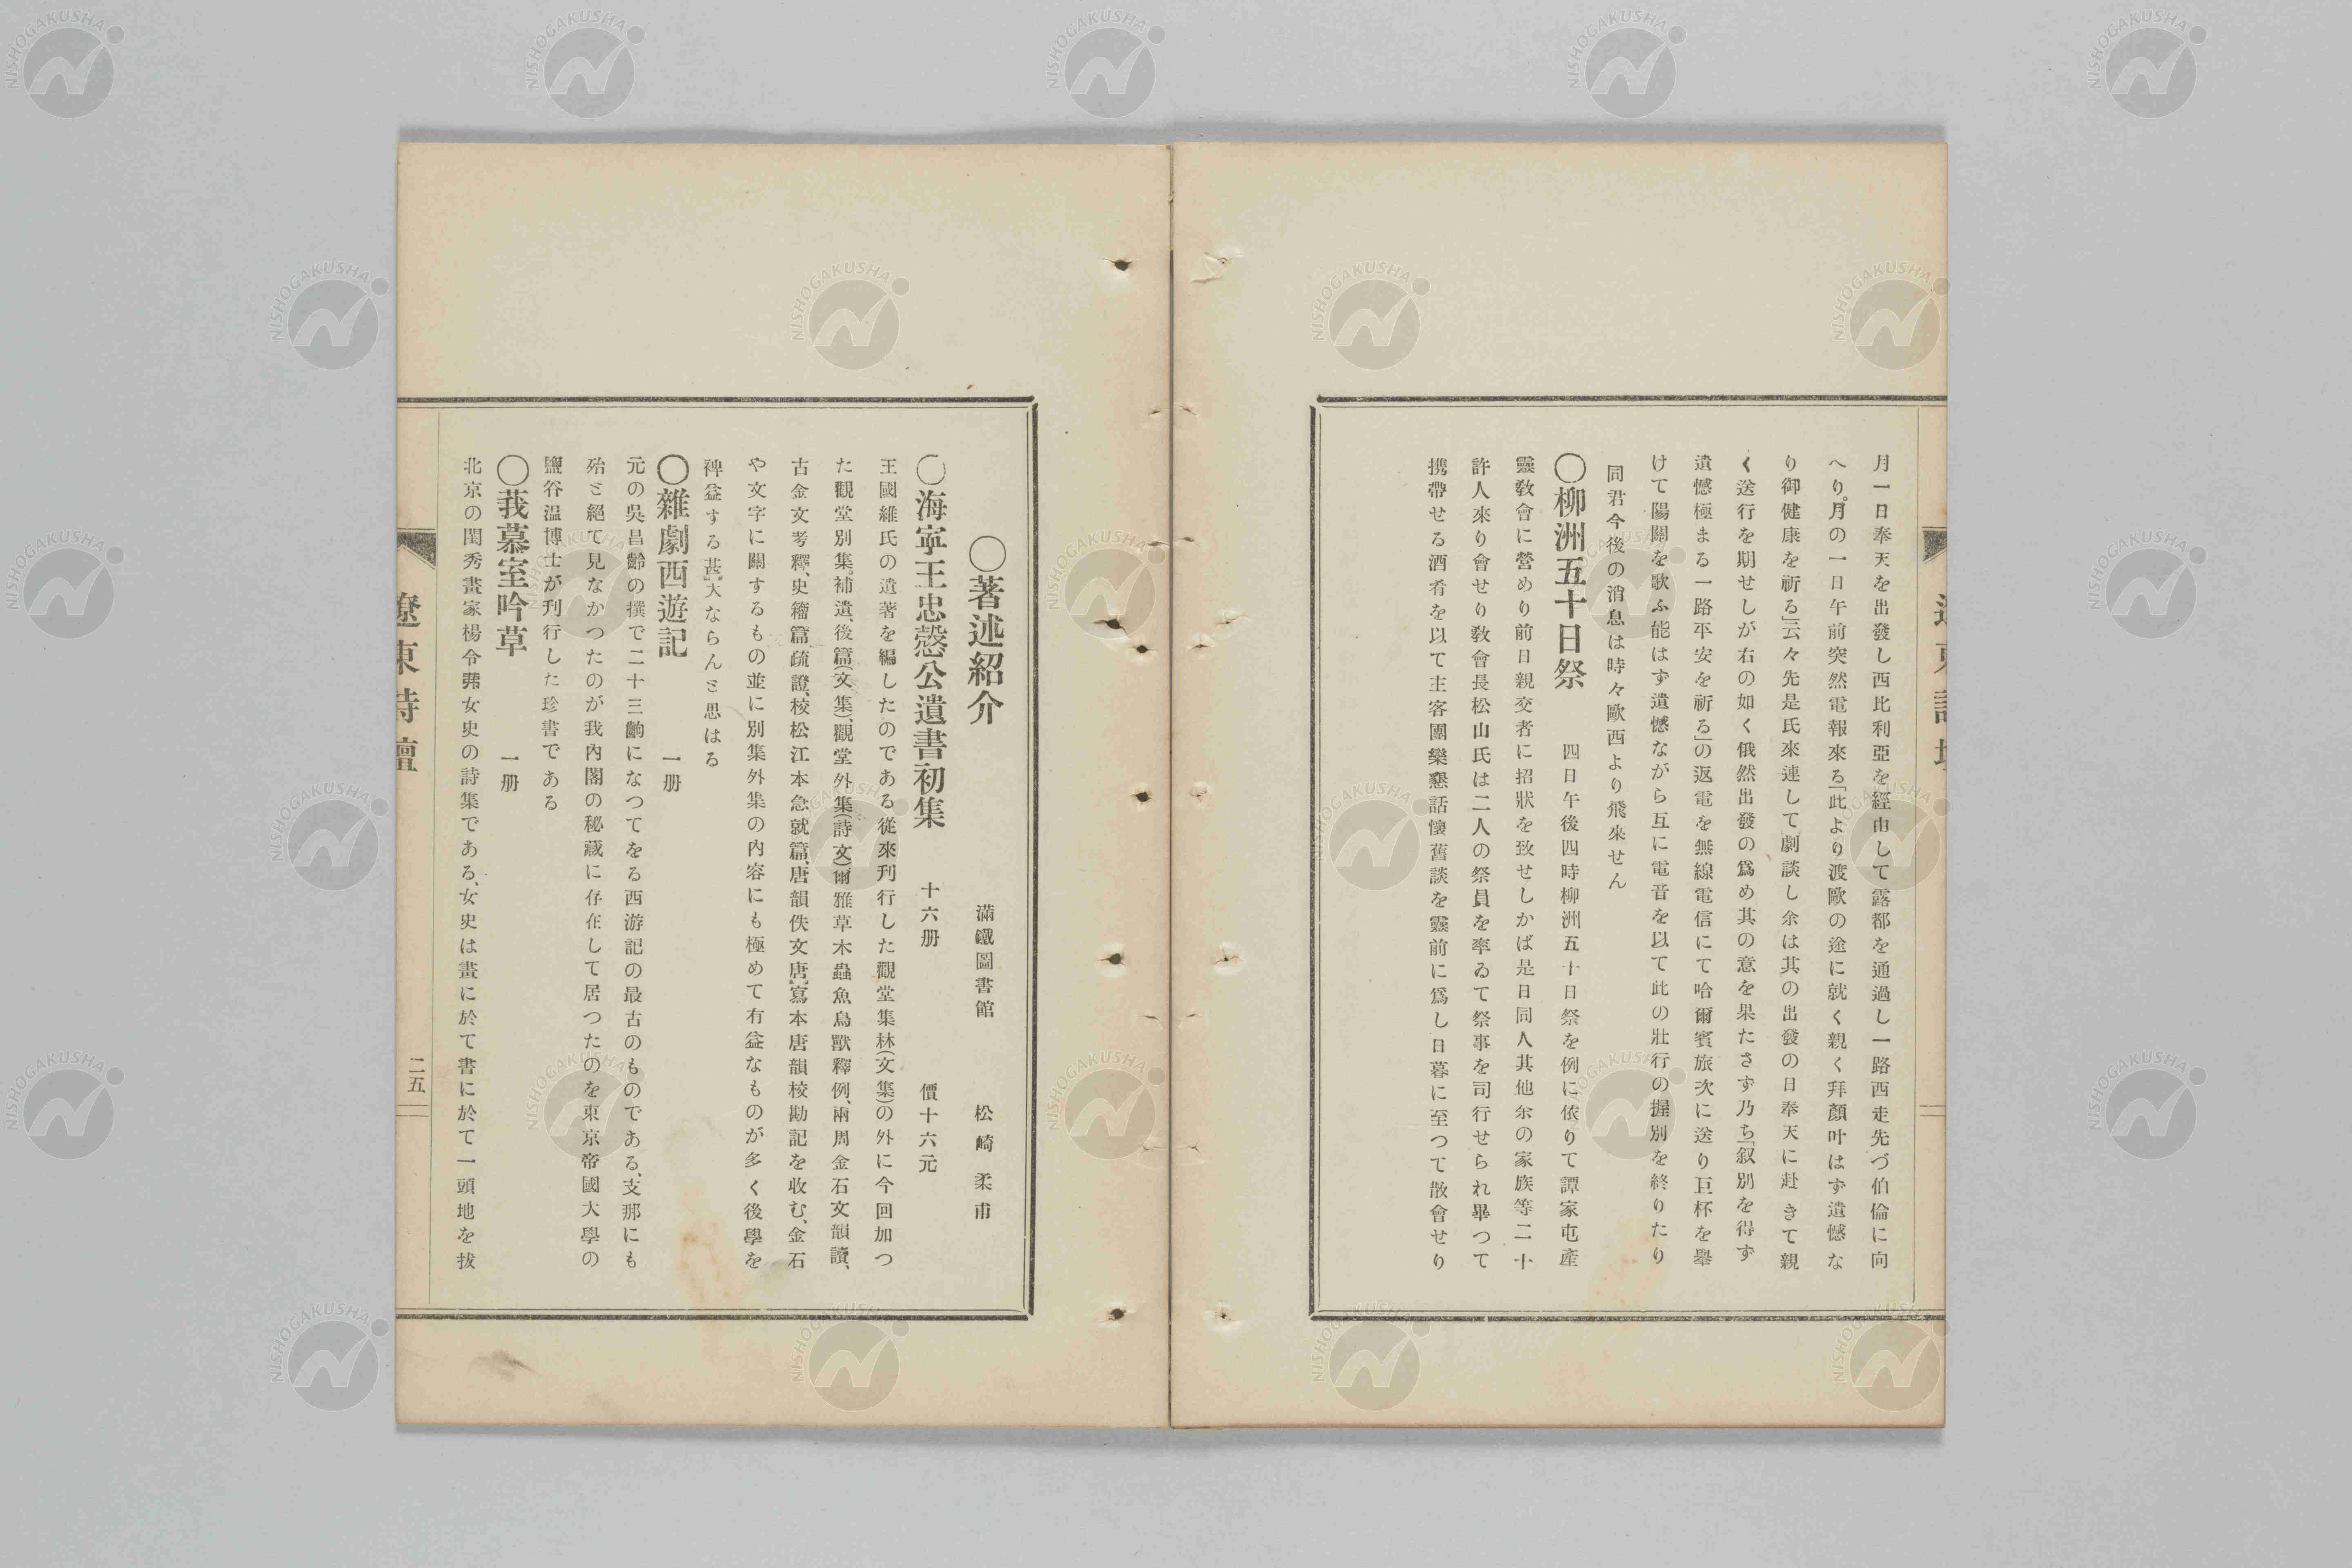 月一日奉天を出發し西比利亞を經由して露都を通過し一路西走先づ伯倫に向
へり。月の一日午前突然電報來る「此より渡歐の途に就く親く拜顏叶はず遺憾な
り御健康を祈る」云々先是氏來連して劇談し余は其の出發の日奉天に赴きて親
く送行を期せしが右の如く俄然出發の爲め其の意を果たさず乃ち「叙別を得ず
遺憾極まる一路平安を祈る」の返電を無線電信にて哈爾賓旅次に送り巨杯を擧
けて陽關を歌ふ能はず遺憾ながら互に電音を以て此の壯行の握別を終りたり
同君今後の消息は時々歐西より飛來せん
〇柳洲五十日祭 四日午後四時柳洲五十日祭を例に依りて譚家屯產
靈敎會に營めり前日親交者に招狀を致せしかば是日同人其他余の家族等二十
許人來り會せり敎會長松山氏は二人の祭員を率ゐて祭事を司行せられ畢つて
携帶せる酒肴を以て主客團欒懇話懷舊談を靈前に爲し日暮に至つて散會せり
〇著述紹介 滿鐵圖書館 松崎柔甫
〇海寧王忠慤公遺書初集 十六册 價十六元
王國維氏の遺著を編したのである從來刊行した觀堂集林(文集)の外に今回加つ
た觀堂別集。補遺、後篇(文集)、觀堂外集(詩文)爾雅草木蟲魚鳥獸釋例、兩周金石文韻讀、
古金文考釋、史籀篇疏證、校松江本急就篇、唐韻佚文唐寫本唐韻校勘記を收む、金石
や文字に關するもの並に別集外集の內容にも極めて有益なものが多く後學を
裨益する甚大ならんと思はる
〇雜劇西遊記 一册
元の吳昌齡の撰で二十三齣になつてをる西游記の最古のものである、支那にも
殆と絕て見なかつたのが我內閣の秘藏に存在して居つたのを東京帝國大學の
鹽谷溫博士が刊行した珍書である
〇莪慕室吟草 一册
北京の閨秀畫家楊令茀女史の詩集である、女史は畫に於て書に於て一頭地を拔
遼東詩壇
二五
NISHOGAKUSHA